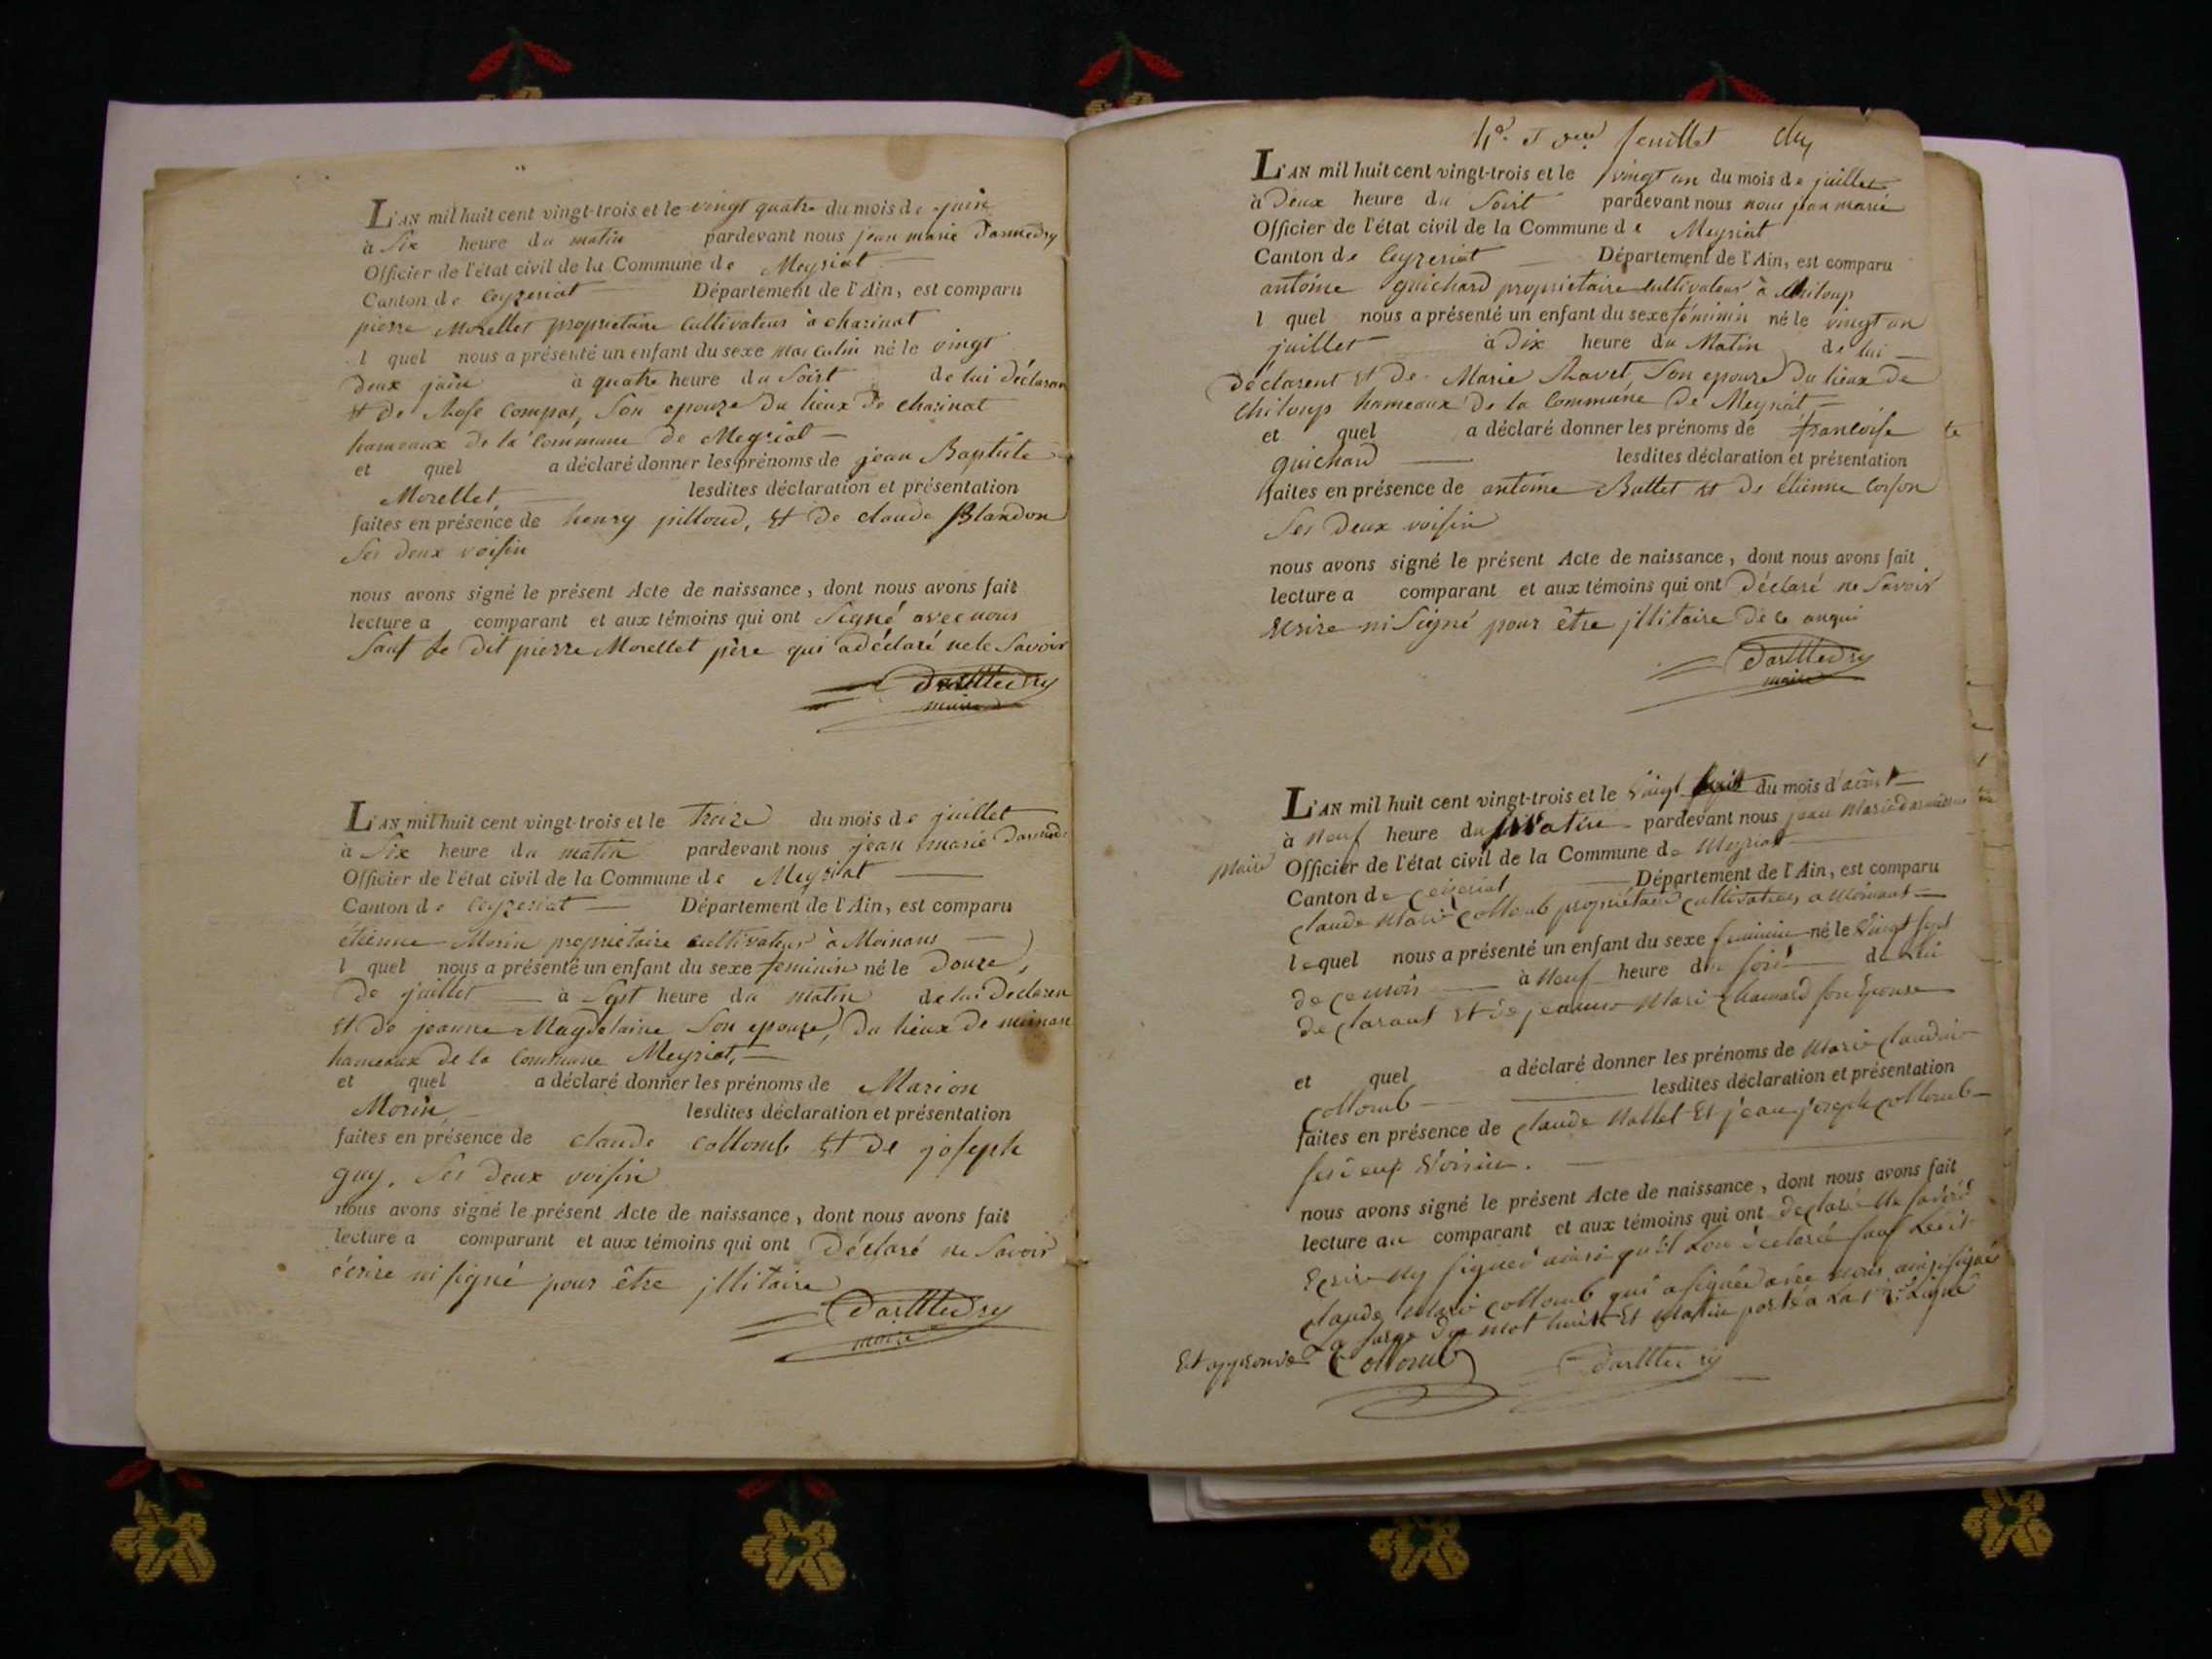 L'AN mil huit cent vingt-trois et le vingt quatre du mois de juin
à Six heure du matin pardevant nous jean marie Darmedry
Officier de l'état civil de la Commune de Meyriat
Canton de Ceyzeriat Département de l'Ain, est comparu
pierre Morellet propriétaire Cultivateur à charinat
l quel nous a présenté un enfant du sexe masculin né le vingt
deux juin à quatre heure du Soirt de lui déclaran
et de Rose Compas, Son epouze du lieux de charinat
hameaux de la Commune de Meyriat
et quel a déclaré donner les prénoms de jean Baptiste
Morellet, lesdites déclaration et présentation
faites en présence de henry pilloud, et de claude Blandon
Ses deux voisin
nous avons signé le présent Acte de naissance, dont nous avons fait
lecture a comparant et aux témoins qui ont Signé avec nous
Sauf le dit pierre Morellet père qui a déclaré ne le Savoir
Darmedry
maire
L'AN mil huit cent vingt-trois et le treize du mois de juillet
à Six heure du matin pardevant nous jean marie Darmed
Officier de l'état civil de la Commune de Meyriat
Canton de Ceyzeriat Département de l'Ain, est comparu
étienne Morin propriétaire cultivateur à Moinans
l quel nous a présenté un enfant du sexe feminin né le douze,
de juillet à Sept heure du matin de lui Declaren
et de jeanne Magdelaine Son epouze, du lieux de moinan
hameaux de la Commune Meyriat,
et quel a déclaré donner les prénoms de Marion
Morin lesdites déclaration et présentation
faites en présence de claude Collomb et de joseph
guy, Ses deux voisin
nous avons signé le présent Acte de naissance, dont nous avons fait
lecture a comparant et aux témoins qui ont Déclaré ne Savoir
écrire ni signé pour être jllitaire
Darmedry
maire
feuillet
L'AN mil huit cent vingt-trois et le vingt un du mois de juillet
à Deux heure du Soirt pardevant nous nous jean marie
Officier de l'état civil de la Commune de Meyriat
Canton de Ceyzeriat Département de l'Ain, est comparu
antoine guichard propriétaire cultivateur à Chiloup
l quel nous a présenté un enfant du sexe féminin né le vingt un
juillet à Dix heure du Matin de lui
déclarent et de Marie Ravet, Son epouze du lieux de
Chiloup hameaux de la Commune de Meyriat
et quel a déclaré donner les prénoms de francoise
guichard lesdites déclaration et présentation
faites en présence de antoine Buttet et de étienne Corson
Ses Deux voisin
nous avons signé le présent Acte de naissance, dont nous avons fait
lecture a comparant et aux témoins qui ont Déclaré ne Savoir
Ecrire ni Signé pour être jllitaire de ce anqui
Darmedry
maire
L'AN mil huit cent vingt-trois et le vingt huit du mois d'août
à Neuf heure du Matin pardevant nous jean Marie darmedry
Maire Officier de l'état civil de la Commune de Meyriat
Canton de Ceizeriat Département de l'Ain, est comparu
Claude Marie Collomb propriétaire cultivateur a Moinans
lequel nous a présenté un enfant du sexe feminin né le vingt sept
de ce mois à Neuf heure du soir de lui
declarant et de jeanne Marie Chanard son Epouse
et quel a déclaré donner les prénoms de Marie Claudine
Collomb lesdites déclaration et présentation
faites en présence de Claude Mallet Et jean joseph Collomb
ses deux Voisin.
nous avons signé le présent Acte de naissance, dont nous avons fait
lecture au comparant et aux témoins qui ont declaré ne savoir
Ecrire ny signer ainsi qu'il l'on déclaré sauf Ledit
Claude Marie Collomb qui a signée avec nous
La surge du mot huit Et Matin porté a La 1re Ligne
Est approuvé Collomb Darmedry